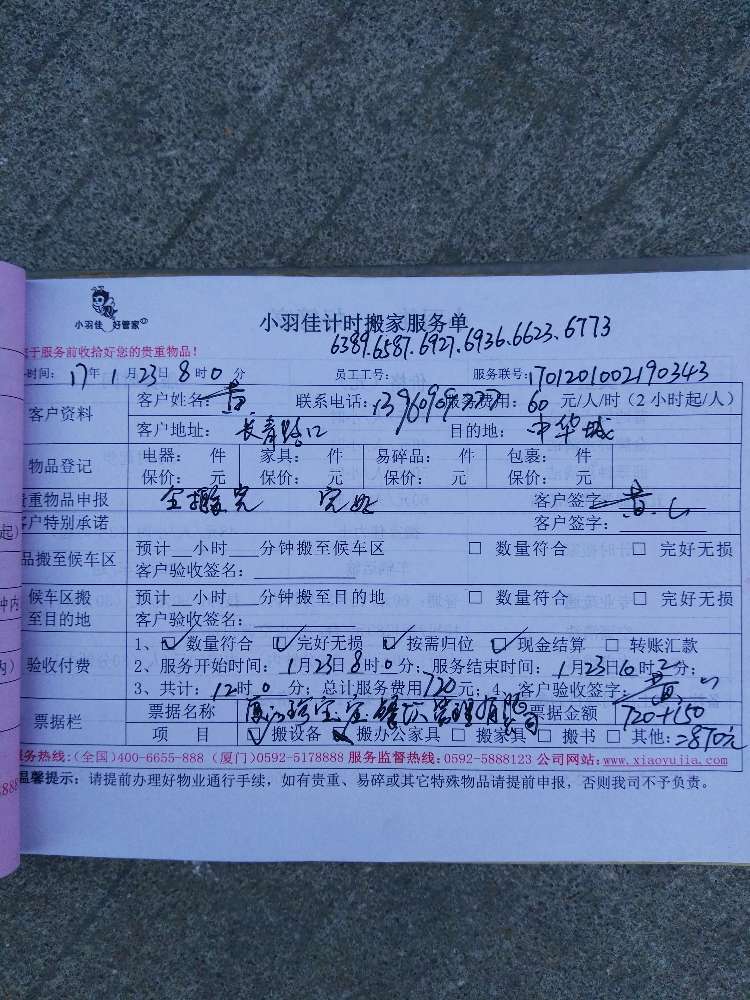 小羽佳 好管家
小羽佳计时搬家服务单
6389.6587.6927.6936.6623.6773
于服务前收拾好您的贵重物品!
时间: 17年1月23日8时0分 员工工号: 服务联号:1701201002190343
客户资料 客户姓名:黄 联系电话: 服务费用:60元/人/时(2小时起/人)
客户地址: 长青路口 目的地: 中华城
物品登记 电器: 件 家具: 件 易碎品: 件 包裹: 件
保价: 元 保价: 元 保价: 元 保价: 元
贵重物品申报 全搬完 完好 客户签字:黄
客户特别承诺 客户签字:
品搬至候车区 预计__小时___分钟搬至候车区 □ 数量符合 □ 完好无损
客户验收签名:
候车区搬至目的地 预计__小时___分钟搬至目的地 □ 数量符合 □ 完好无损
客户验收签名:
验收付费 1、☑数量符合 ☑完好无损 ☑按需归位 ☑现金结算 □ 转账汇款
2、服务开始时间: 1月23日8时0分; 服务结束时间: 1月23日10时2分;
3、共计:12时0分; 总计服务费用720元; 4、客户验收签字:黄
票据栏 票据名称 管理有限公司 票据金额 720+150
项 目 ☑搬设备 ☑搬办公家具 □ 搬家具 □ 搬书 □ 其他:=870元
服务热线:(全国)400-6655-888 (厦门)0592-5178888 服务监督热线:0592-5888123 公司网站:www.xiaoyujia.com
温馨提示: 请提前办理好物业通行手续,如有贵重、易碎或其它特殊物品请提前申报,否则我司不予负责。
起)
钟内
内)
8888